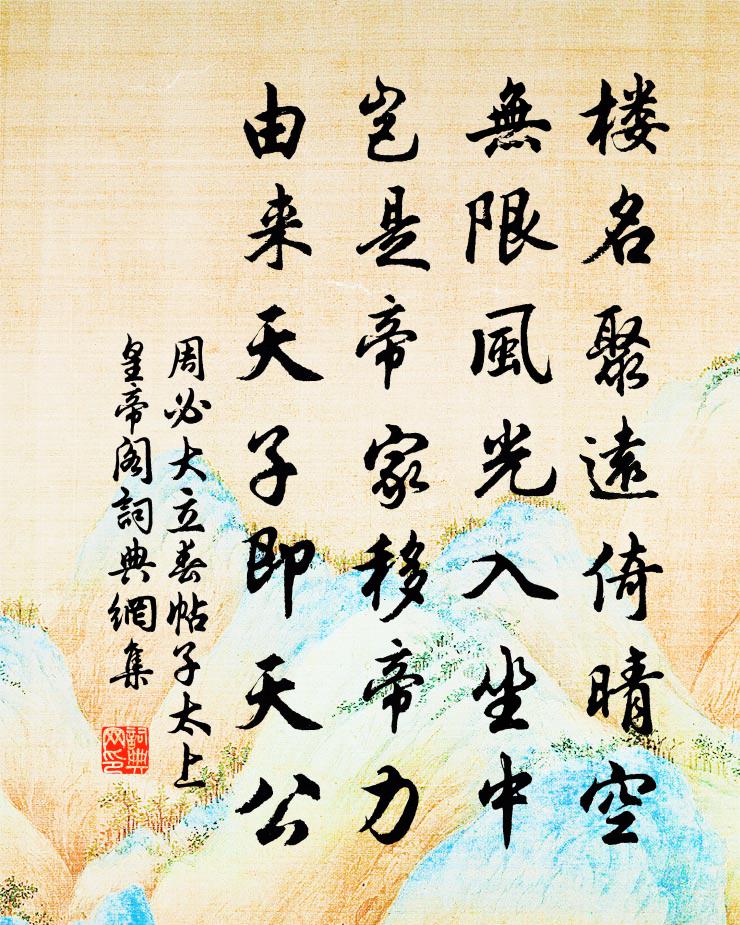 楼名聚遠倚晴空
無限風光入坐中
豈是帝家移帝力
由来天子即天公
周必大立春帖子太上
皇帝阁詞典網集
詞典
网印